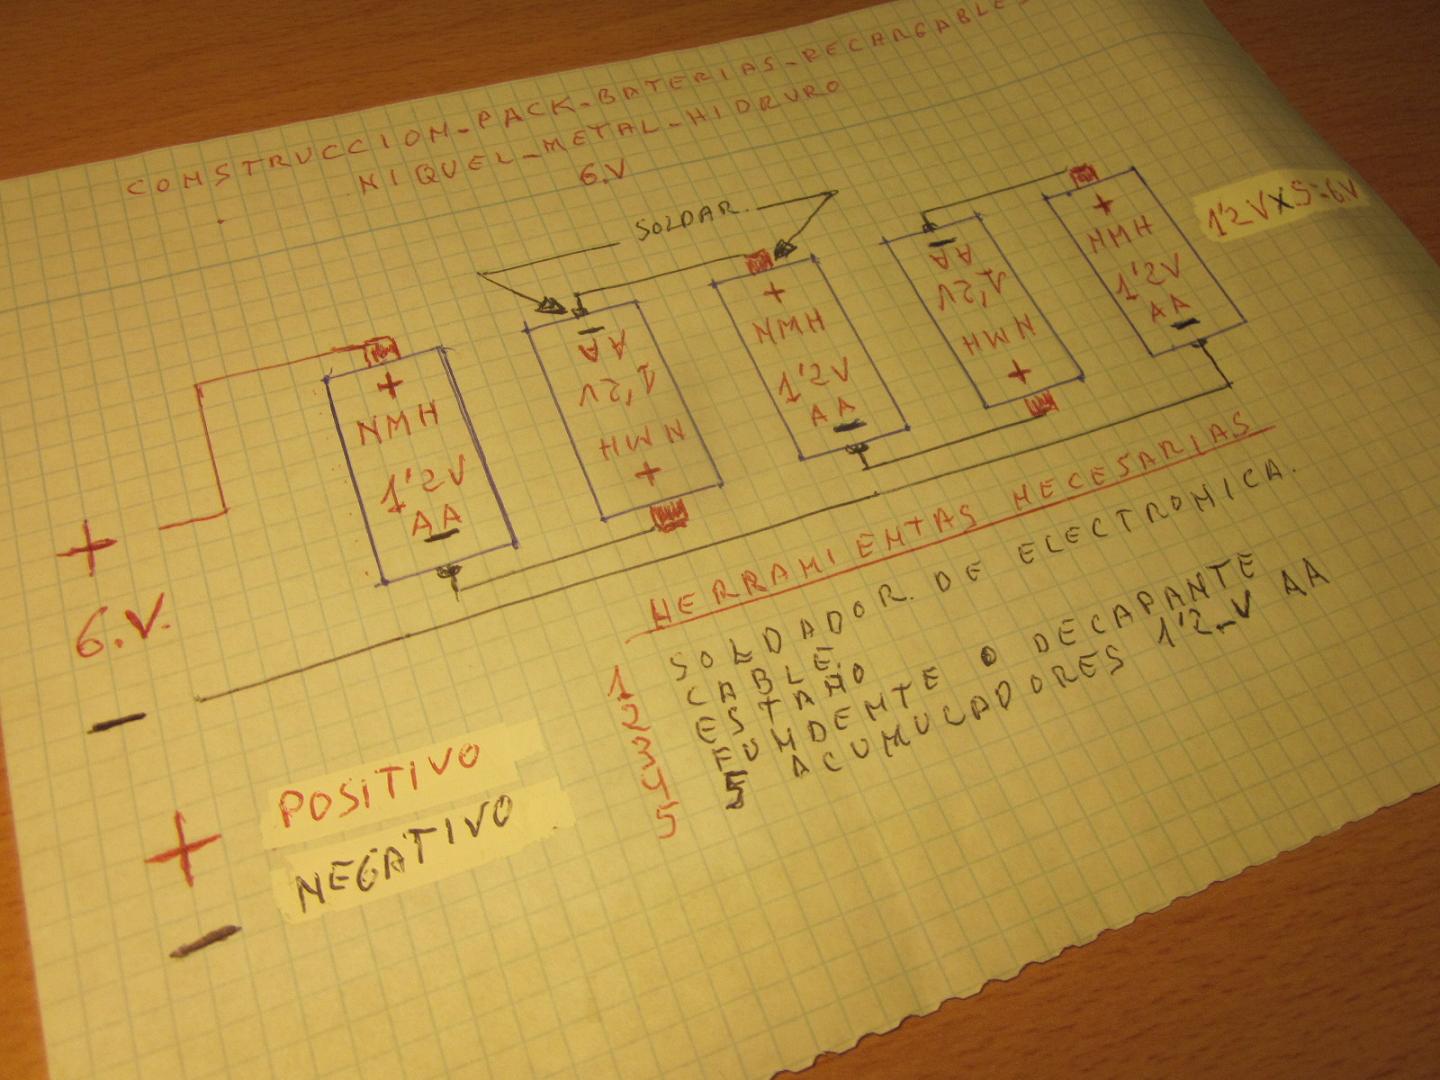 CONSTRUCCION-PACK-BATERIAS-RECARGABLES
NIQUEL-METAL-HIDRURO
6.V
SOLDAR.
+
NMH
1'2V
AA
-
-
AA
1'2V
NMH
+
+
NMH
1'2V
AA
-
-
AA
1'2V
NMH
+
+
NMH
1'2V
AA
-
1'2VX5=6V
+
6.V.
-
HERRAMIENTAS NECESARIAS
1 SOLDADOR. DE ELECTRONICA.
2 CABLE.
3 ESTAÑO
4 FUNDENTE O DECAPANTE
5 5 ACUMULADORES 1'2-V AA
+ POSITIVO
- NEGATIVO